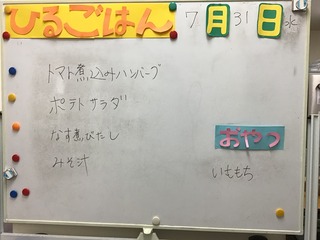 ひるごはん 7月31日水
トマト煮込みハンバーグ
ポテトサラダ
なす煮びたし
みそ汁
おやつ
いももち